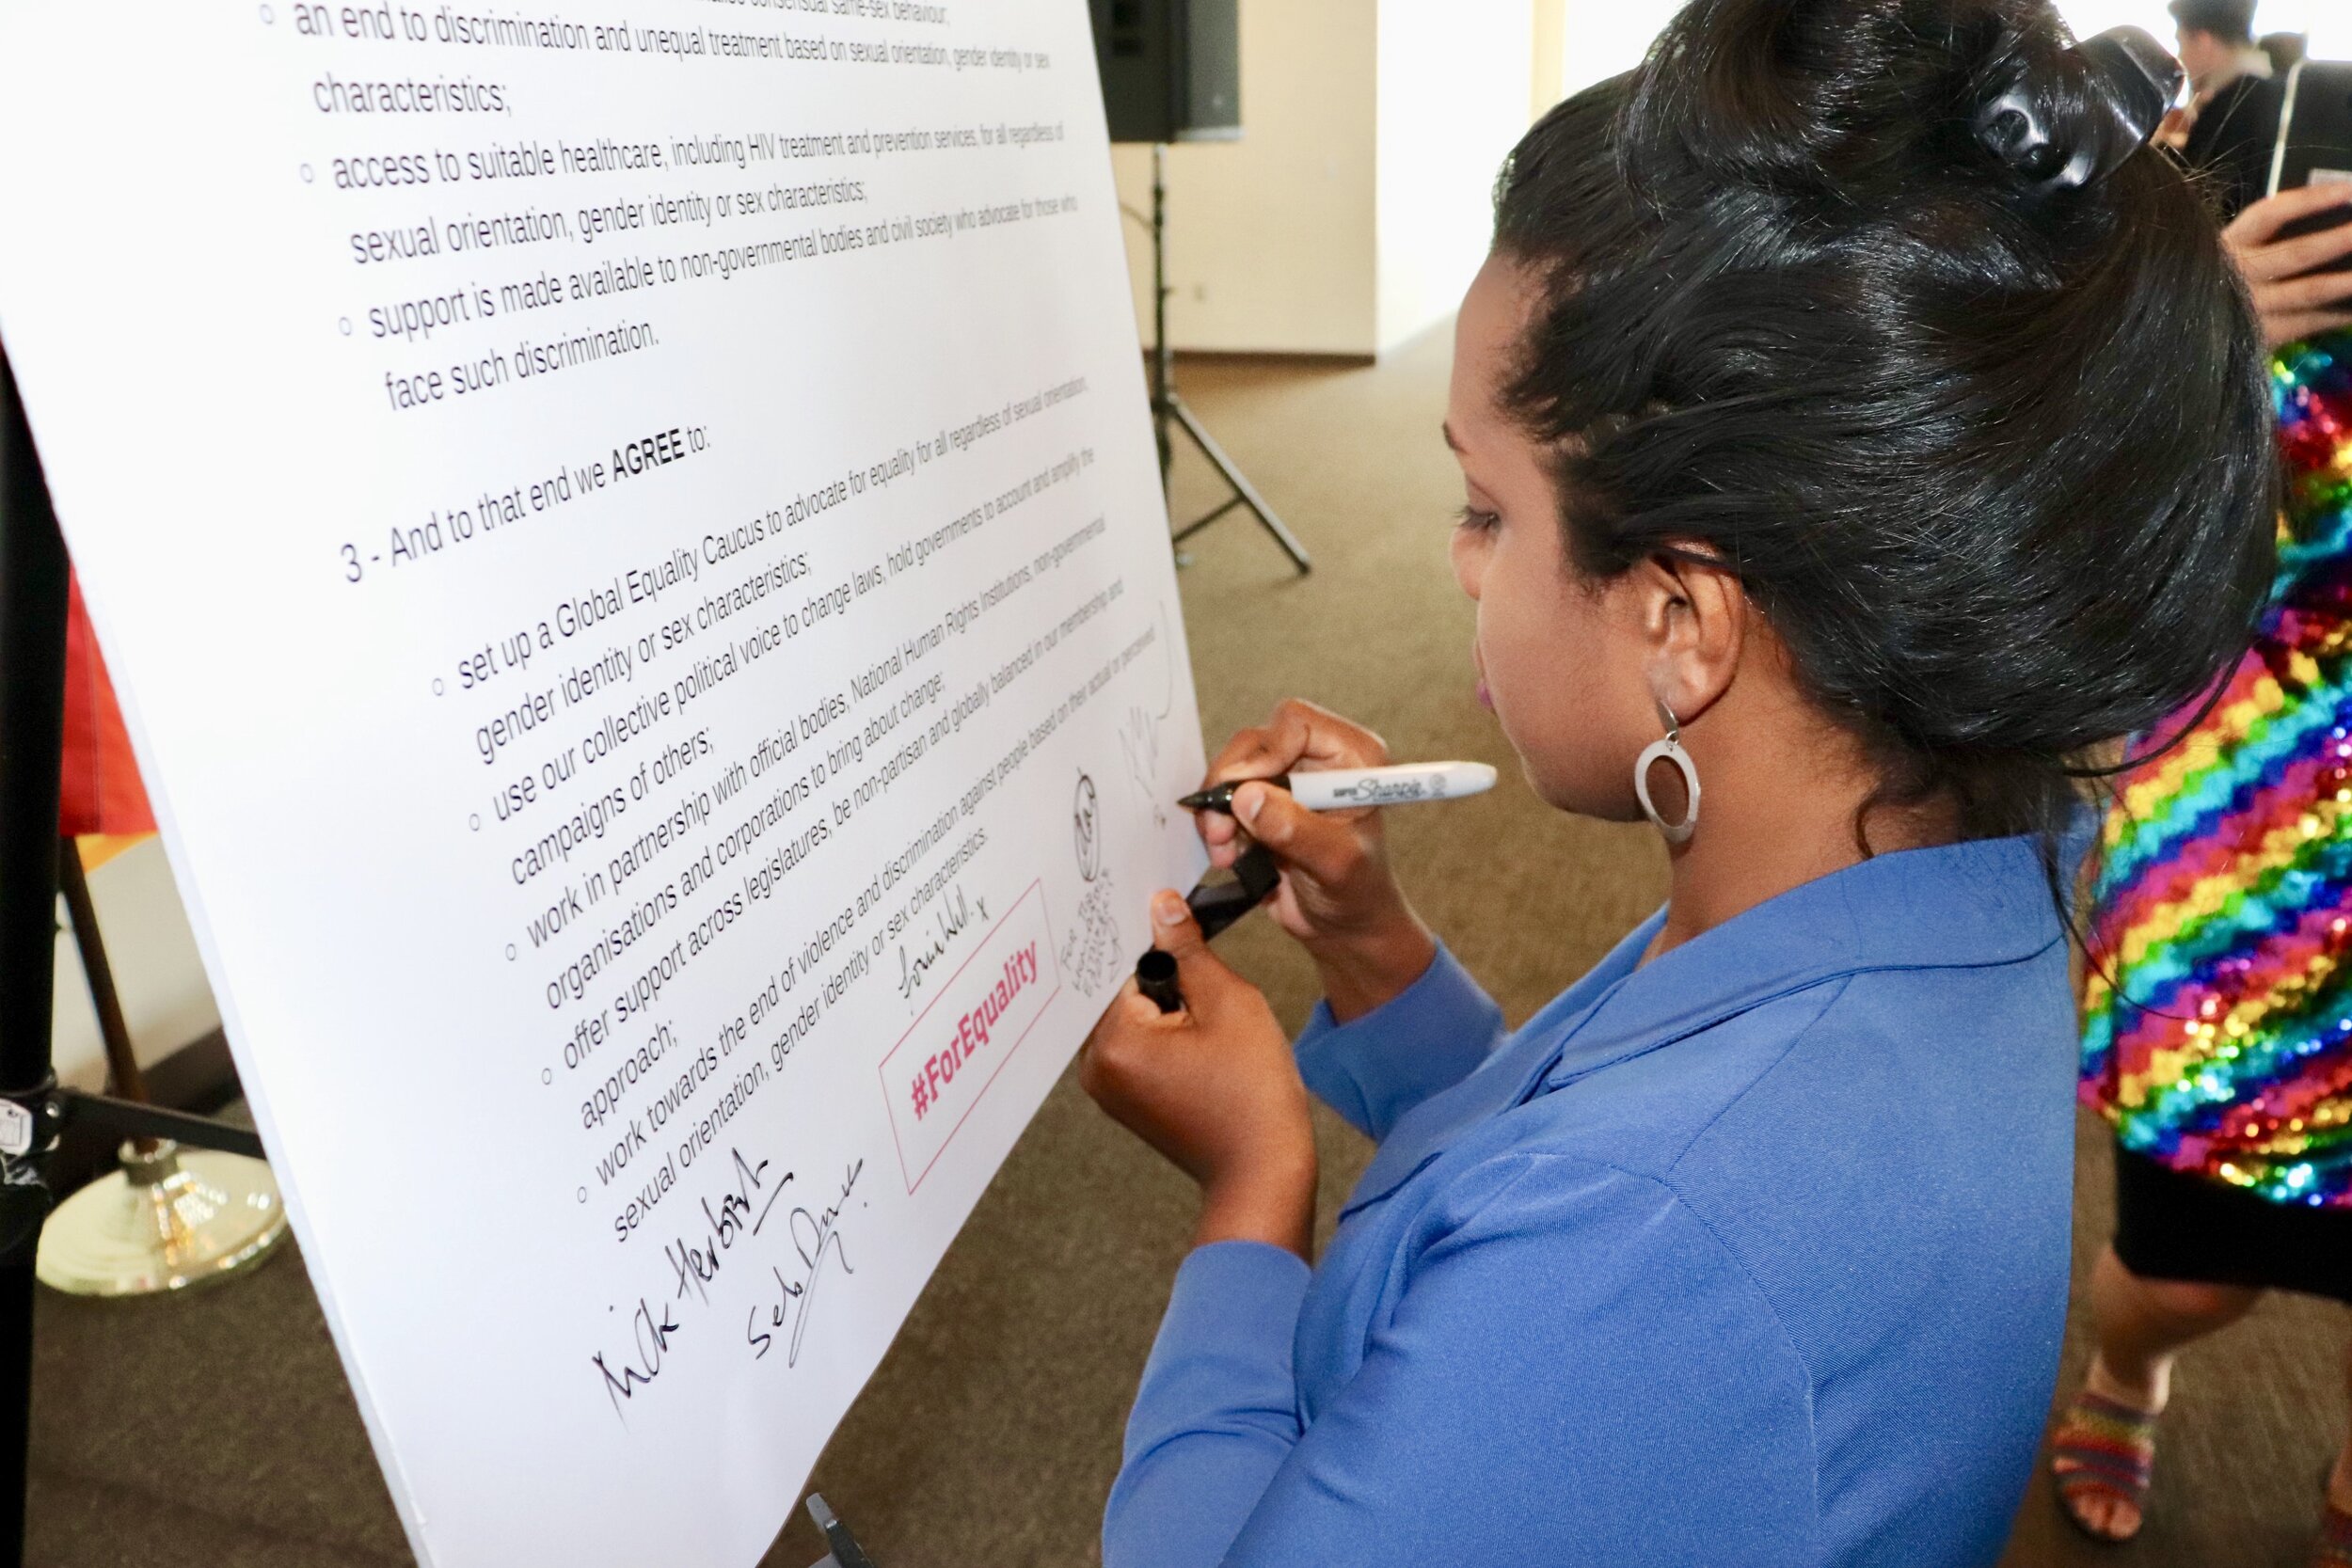 consensual same-sex behaviour;
○ an end to discrimination and unequal treatment based on sexual orientation, gender identity or sex
characteristics;
○ access to suitable healthcare, including HIV treatment and prevention services, for all regardless of
sexual orientation, gender identity or sex characteristics;
○ support is made available to non-governmental bodies and civil society who advocate for those who
face such discrimination.
3 - And to that end we AGREE to:
○ set up a Global Equality Caucus to advocate for equality for all regardless of sexual orientation,
gender identity or sex characteristics;
○ use our collective political voice to change laws, hold governments to account and amplify the
campaigns of others;
○ work in partnership with official bodies, National Human Rights Institutions, non-governmental
organisations and corporations to bring about change;
○ offer support across legislatures, be non-partisan and globally balanced in our membership and
approach;
○ work towards the end of violence and discrimination against people based on their actual or perceived
sexual orientation, gender identity or sex characteristics.
Nick Herbert
#ForEquality
Sharpie